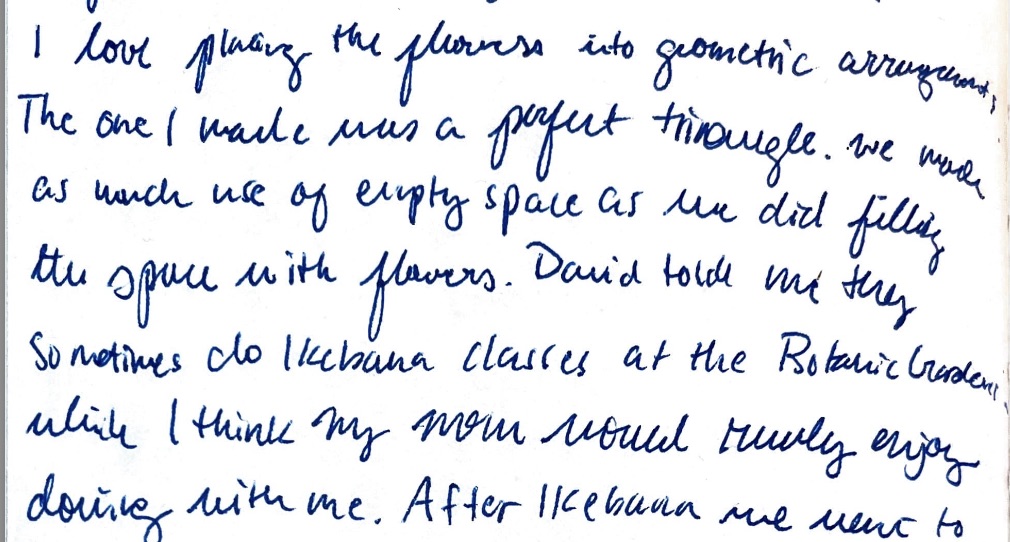 I love placing the flowers into geometric arrangements
The one I made was a perfect triangle. we made
as much use of empty space as we did filling
the space with flowers. David told me they
sometimes do Ikebana classes at the Botanic Gardens
which I think my mom would really enjoy
doing with me. After Ikebana we went to